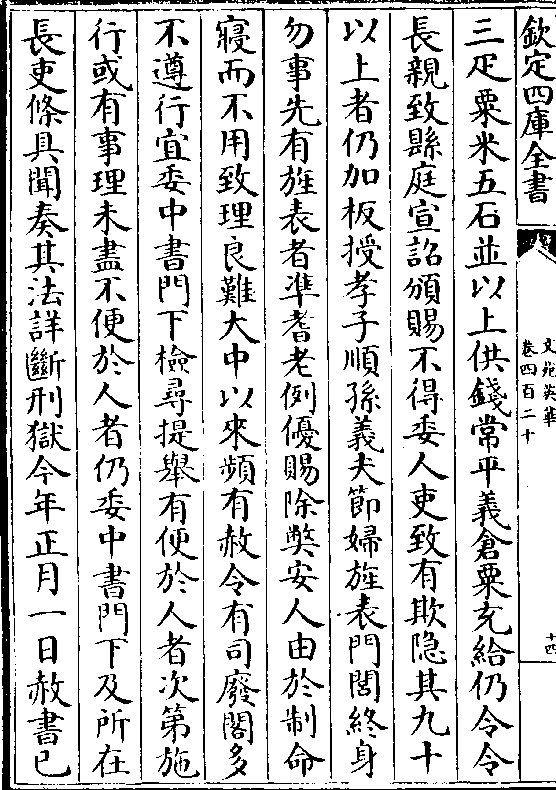 欽定四庫全書
文苑英華
卷四百二十
十四
三疋粟米五石並以上供錢常平義倉粟充給仍令令
長親致縣庭宣詔頒賜不得委人吏致有欺隐其九十
以上者仍加板授孝子順孫義夫節婦旌表門閭終身
勿事先有旌表者準耆老例優賜除弊安人由於制命
寢而不用致理良難大中以來頻有赦令有司廢閣多
不遵行宜委中書門下檢尋提舉有便於人者次第施
行或有事理未盡不便於人者仍委中書門下及所在
長吏條具聞奏其法詳斷刑獄今年正月一日赦書已